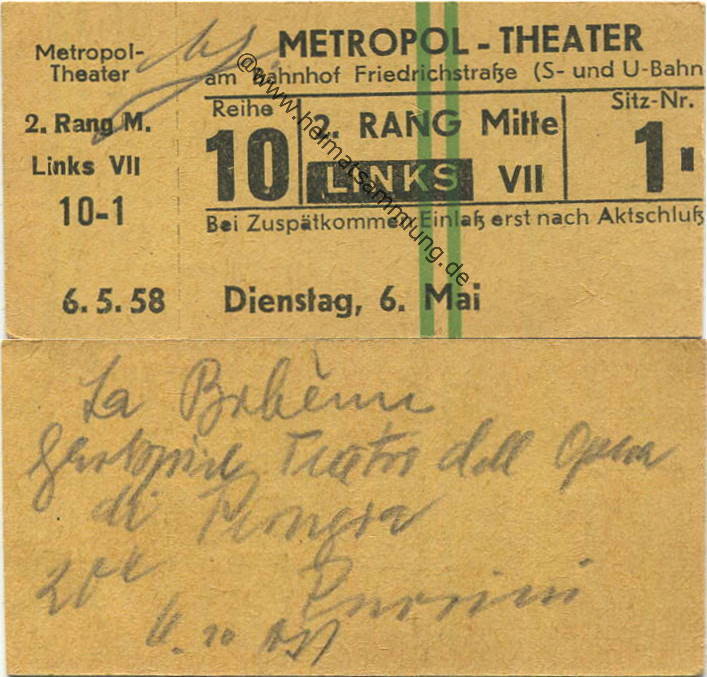 Metropol-
Theater
2. Rang M.
Links VII
10-1
6.5.58
METROPOL - THEATER
am Bahnhof Friedrichstraße (S- und U-Bahn
Reihe
10
2. RANG Mitte
LINKS VII
Sitz-Nr.
1
Bei Zuspätkommen Einlaß erst nach Aktschluß
Dienstag, 6. Mai
@www.heimatsammlung.de
La Bohème
Gastspiel Teatro dell Opera
di
Puccini